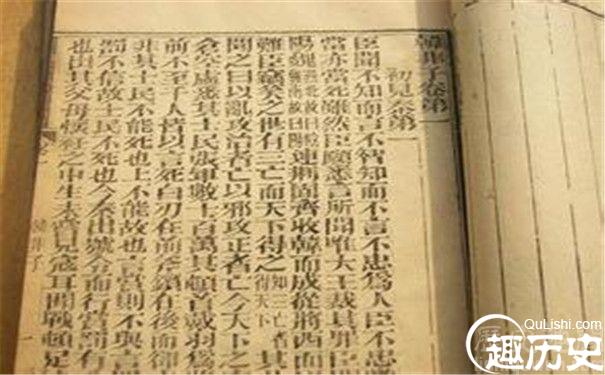 韓非子卷第一
初見秦第一
臣聞不知而言不智知而不言不忠為人臣不忠
當亦當死雖然臣願悉言所聞唯大王裁其罪臣
陽魏燕北故曰陰魏南故曰陽連荊固齊收韓而成從將西面
難臣竊笑之世有三亡而天下得之知三亡者得天下其
聞之曰以亂攻治者亡以邪攻正者亡今天下
倉空虛悉其士民張軍數十百萬其頓首戴羽為
前不至千人皆以言死白刃在前斧鑕在後而
非其士民不能死也上不能故也言賞則不與言
罰不信故士民不死也今秦出號令而行賞罰有
也出其父母懷衽之中生未嘗見寇耳聞戰頓足
韓非子
QuLishi.com
趣历史